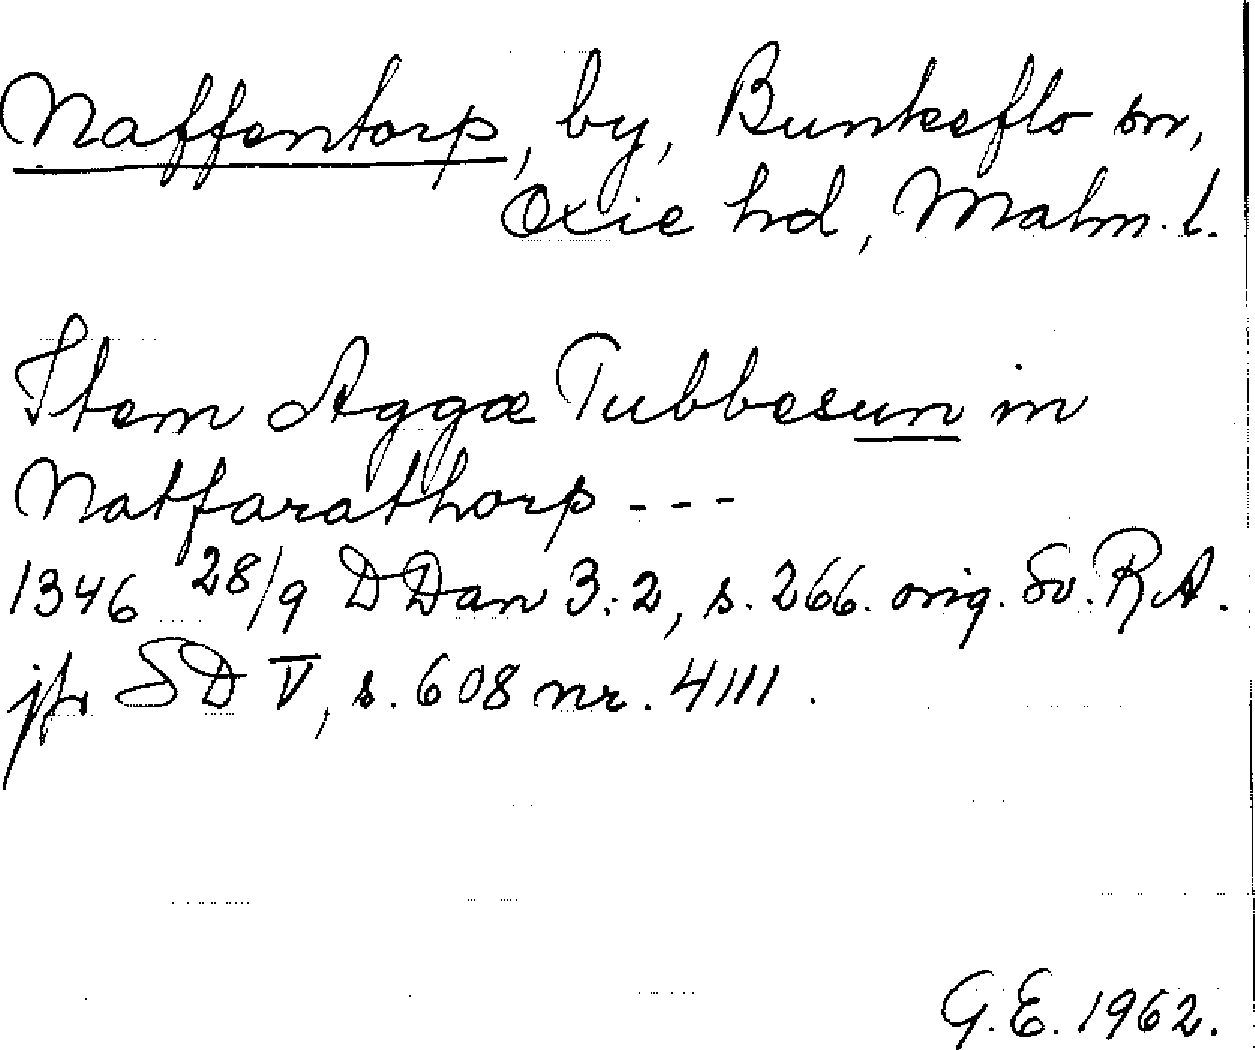 Naffentorp, by, Bunkeflo sn,
Oxie hd, Malm. l.
Item Aggæ Tubbesun in
Natfarathorp - - -
1346 28/9 DDan 3:2, s. 266. orig. Sv. RA.
jfr SD V, s. 608 nr. 4111.
G.E. 1962.